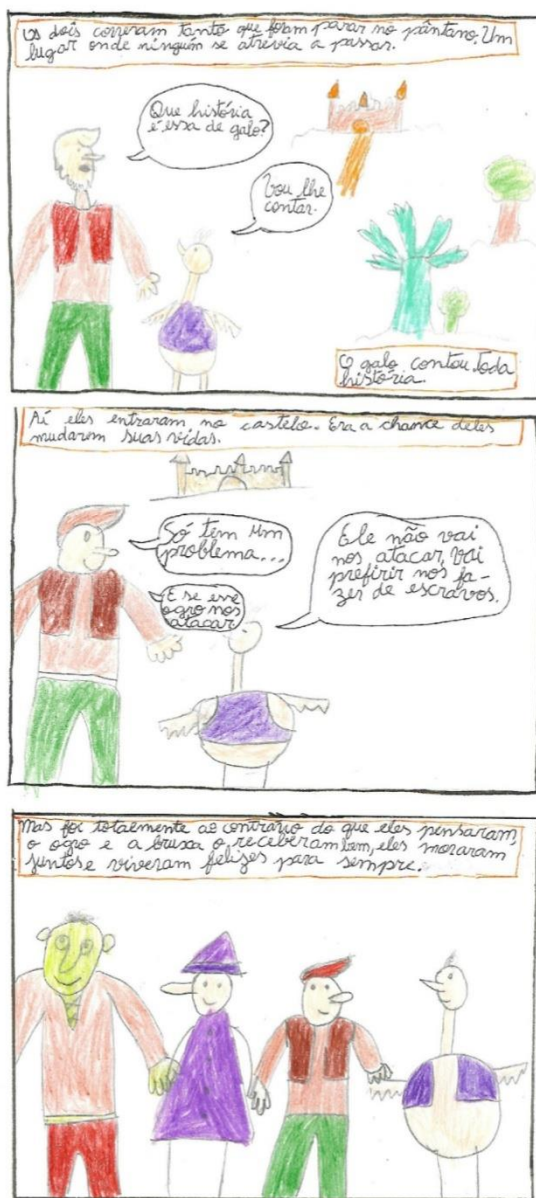 Os dois correram tanto que foram parar no pântano. Um
lugar onde ninguém se atrevia a passar.
Que história
é essa de galo?
Vou lhe
contar.
O galo contou toda
história.
Aí eles entraram no castelo. Era a chance deles
mudarem suas vidas.
Só tem um
problema...
E se esse
ogro nos
atacar
Ele não vai
nos atacar, vai
prefirir nos fa-
zer de escravos.
Mas foi totalmente ao contrário do que eles pensaram,
o ogro e a bruxa o receberam bem, eles moraram
juntos e viveram felizes para sempre.